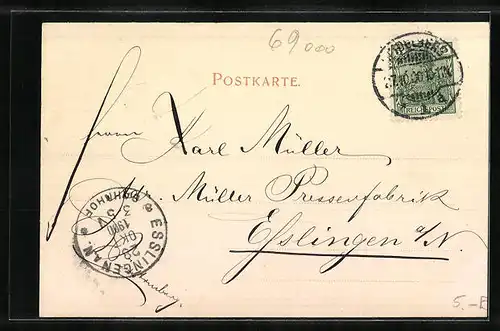 69000
POSTKARTE.
HEIDELBERG
REICHSPOST
Herrn
Karl Müller
Müller Pressenfabrik
Esslingen a/N.
ESSLINGEN A.N.
BAHNHOF
29
OKT
1900
5.-E